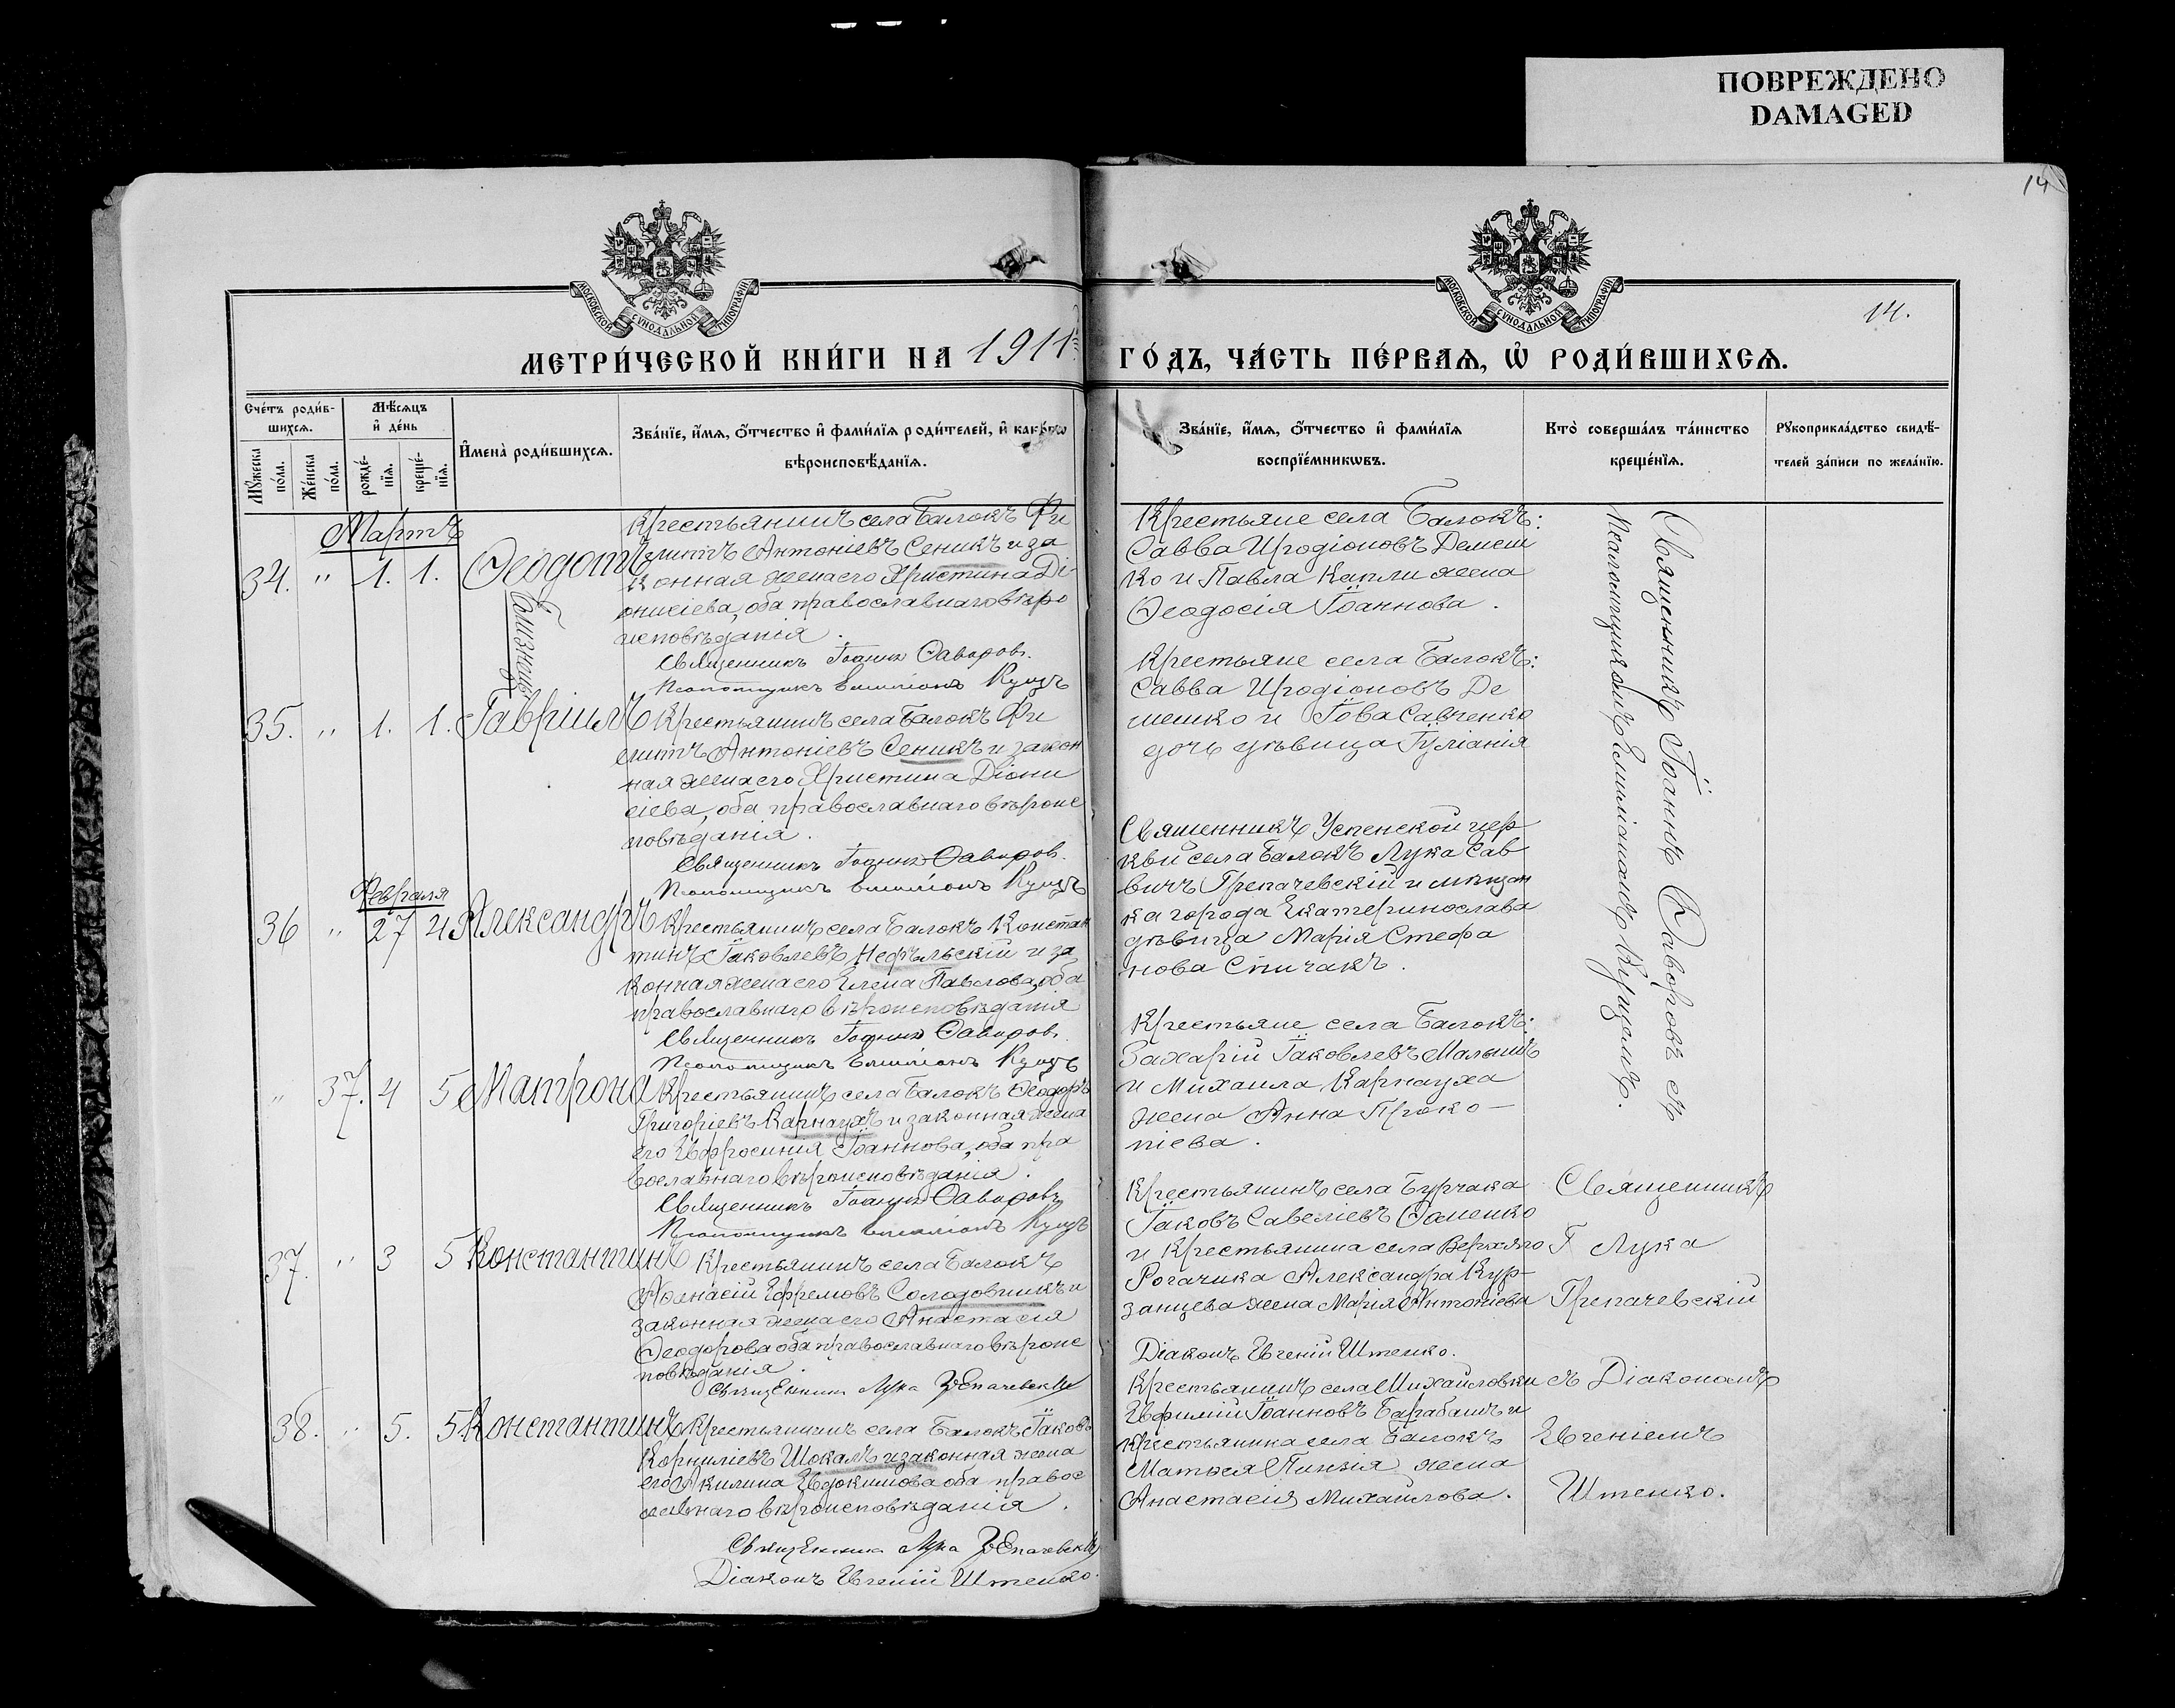 ПОВРЕЖДЕНО
DAMAGED
14
МОСКОВСКОЙ СУНОДАЛЬНОЙ ТИПОГРАФІИ
МОСКОВСКОЙ СУНОДАЛЬНОЙ ТИПОГРАФІИ
14.
МЕТРИ́ЧЕСКОЙ КНИ́ГИ НА 1911 ГО́ДЪ, ЧА́СТЬ ПЕ́РВАЯ, Ѡ РОДИ́ВШИХСЯ.
Сче́тъ роди́в-
шихся.
Мѣ́сяцъ
и де́нь
Му́жеска по́ла.
Же́нска по́ла.
рожде́-
нія.
креще́-
нія.
Имена̀ роди́вшихся.
Зва́нїе, и́мя, о́тчество и фами́лїя роди́телей, и како́гѡ
вѣроисповѣ́данїя.
Зва́нїе, и́мя, о́тчество и фами́лїя
воспрїе́мникѡвъ.
Кто̀ соверша́лъ та́инство
креще́нїя.
Рукоприкла́дство свидѣ́-
телей за́писи по жела́нїю.
Мартъ
34. " 1. 1. Ѳеодотъ
Близнецы
Крестьянинъ села Балокъ Фи
липпъ Антоніевъ Сеникъ и за
конная жена его Христина Ді-
онисіева, оба православнаго вѣро
исповѣданія.
Священникъ Іоаннъ Ѳаворовъ.
Псаломщикъ Емиліанъ Куцъ
Крестьяне села Балокъ:
Савва Иродіоновъ Демеш
ко и Павла Капли жена
Ѳеодосія Іоаннова.
35. " 1. 1. Гавріилъ
Крестьянинъ села Балокъ Фи
липпъ Антоніевъ Сеникъ и закон
ная жена его Христина Діони
сіева, оба православнаго вѣроис
повѣданія.
Священникъ Іоаннъ Ѳаворовъ.
Псаломщикъ Емиліанъ Куцъ
Крестьяне села Балокъ:
Савва Иродіоновъ Де
мешко и Іова Савченко
дочь дѣвица Іуліанія
Февраля
36 " 27 4 Александръ
Крестьянинъ села Балокъ Констан
тинъ Іаковлевъ и за
конная жена его Елена Павлова, оба
православнаго вѣроисповѣданія
Священникъ Іоаннъ Ѳаворовъ.
Псаломщикъ Емиліанъ Куцъ
Священникъ Успенской цер
кви села Балокъ Лука Сав
вичъ Грепачевскій и мѣщан
ка города Екатеринослава
дѣвица Марія Стефа
нова Спичакъ.
" 37. 4 5 Матрона
Крестьянинъ села Балокъ Ѳеодоръ
Григоріевъ Карнаухъ и законная жена
его Евфросинія Іоаннова, оба пра
вославнаго вѣроисповѣданія.
Священникъ Іоаннъ Ѳаворовъ
Псаломщикъ Емиліанъ Куцъ
Крестьяне села Балокъ:
Захарій Іаковлевъ Малышъ
и Михаила Карнауха
жена Анна Проко-
піева.
Священникъ Іоаннъ Ѳаворовъ съ
Псаломщикомъ Емиліаномъ Куцемъ.
37. " 3 5 Константинъ
Крестьянинъ села Балокъ
Аѳанасій Ефремовъ Солодовникъ и
законная жена его Анастасія
Ѳеодорова оба православнаго вѣроис
повѣданія.
Священникъ Лука Грепачевскій
Крестьянинъ села Бурчака
Іаковъ Савеліевъ Фоменко
и Крестьянина села Верхняго
Рогачика Александра Кур-
занцева жена Марія Антоніева
Діаконъ Евгеній Штенко.
38. " 5. 5 Константинъ
Крестьянинъ села Балокъ Іаковъ
Корниліевъ Шокалъ и законная жена
его Акилина Евдокимова оба правос
лавнаго вѣроисповѣданія.
Священникъ Лука Грепачевскій
Діаконъ Евгеній Штенко.
Крестьянинъ села Михайловки
Евфимій Іоанновъ Барабашъ и
крестьянина села Балокъ
Матѳея жена
Анастасія Михайлова.
Священникъ
Лука
Грепачевскій
съ Діакономъ
Евгеніемъ
Штенко.